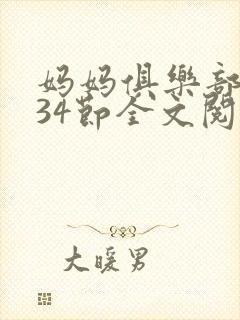 妈妈俱樂部
34節全文閱
大暖男